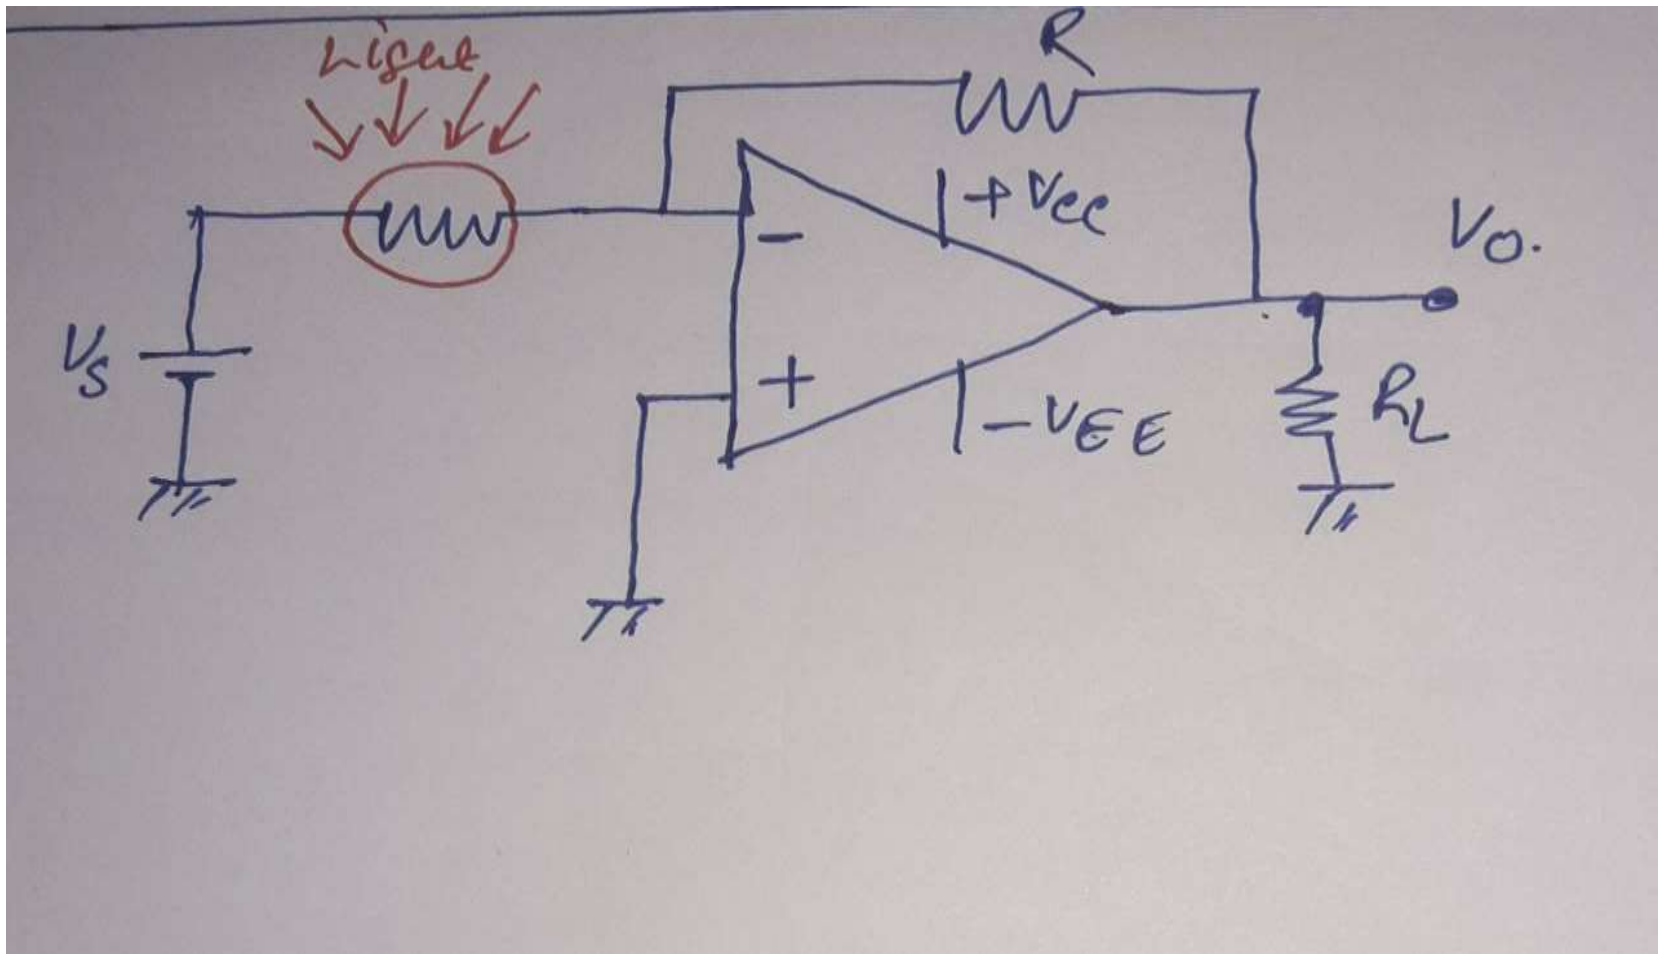 Light
R
+VCC
VO.
VS
-
+
-VEE
RL